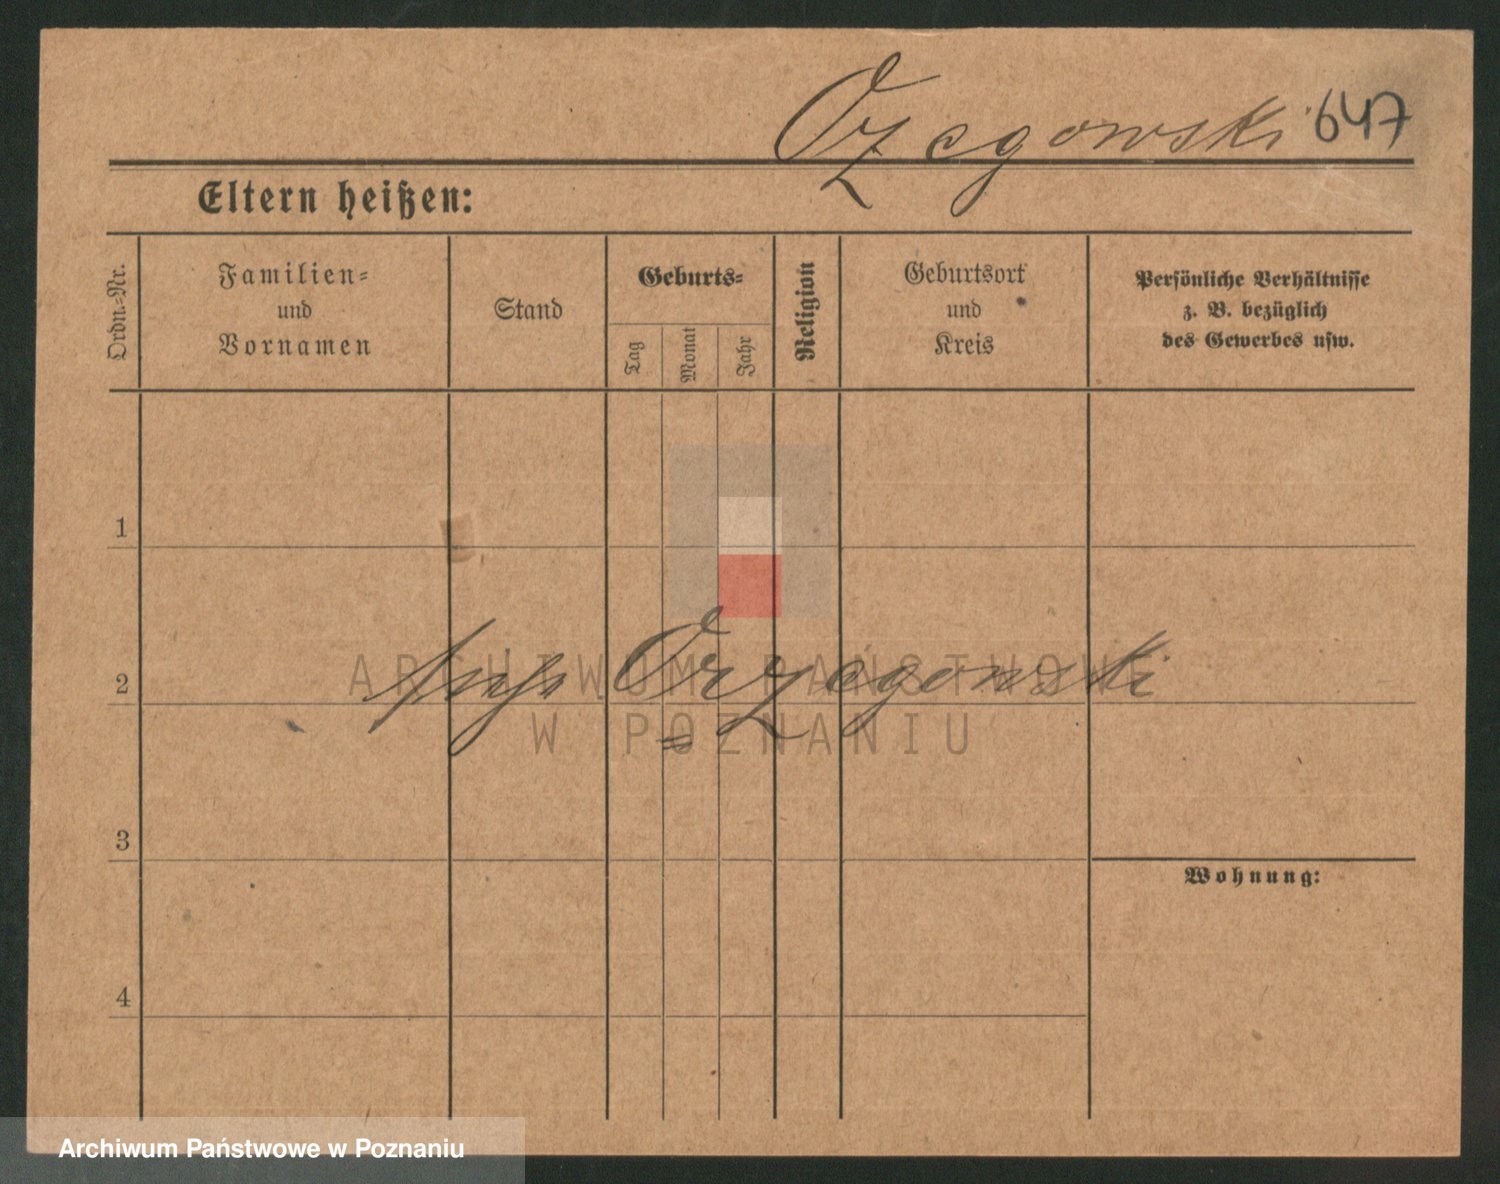 Ozegowski 647
Eltern heißen:
Ordn.-Nr.
Familien-
und
Vornamen
Stand
Geburts-
Tag
Monat
Jahr
Religion
Geburtsort
und
Kreis
Persönliche Verhältnisse
z. B. bezüglich
des Gewerbes usw.
1
2
3
4
Orzegowski
Wohnung:
ARCHIWUM PAŃSTWOWE
W POZNANIU
Archiwum Państwowe w Poznaniu